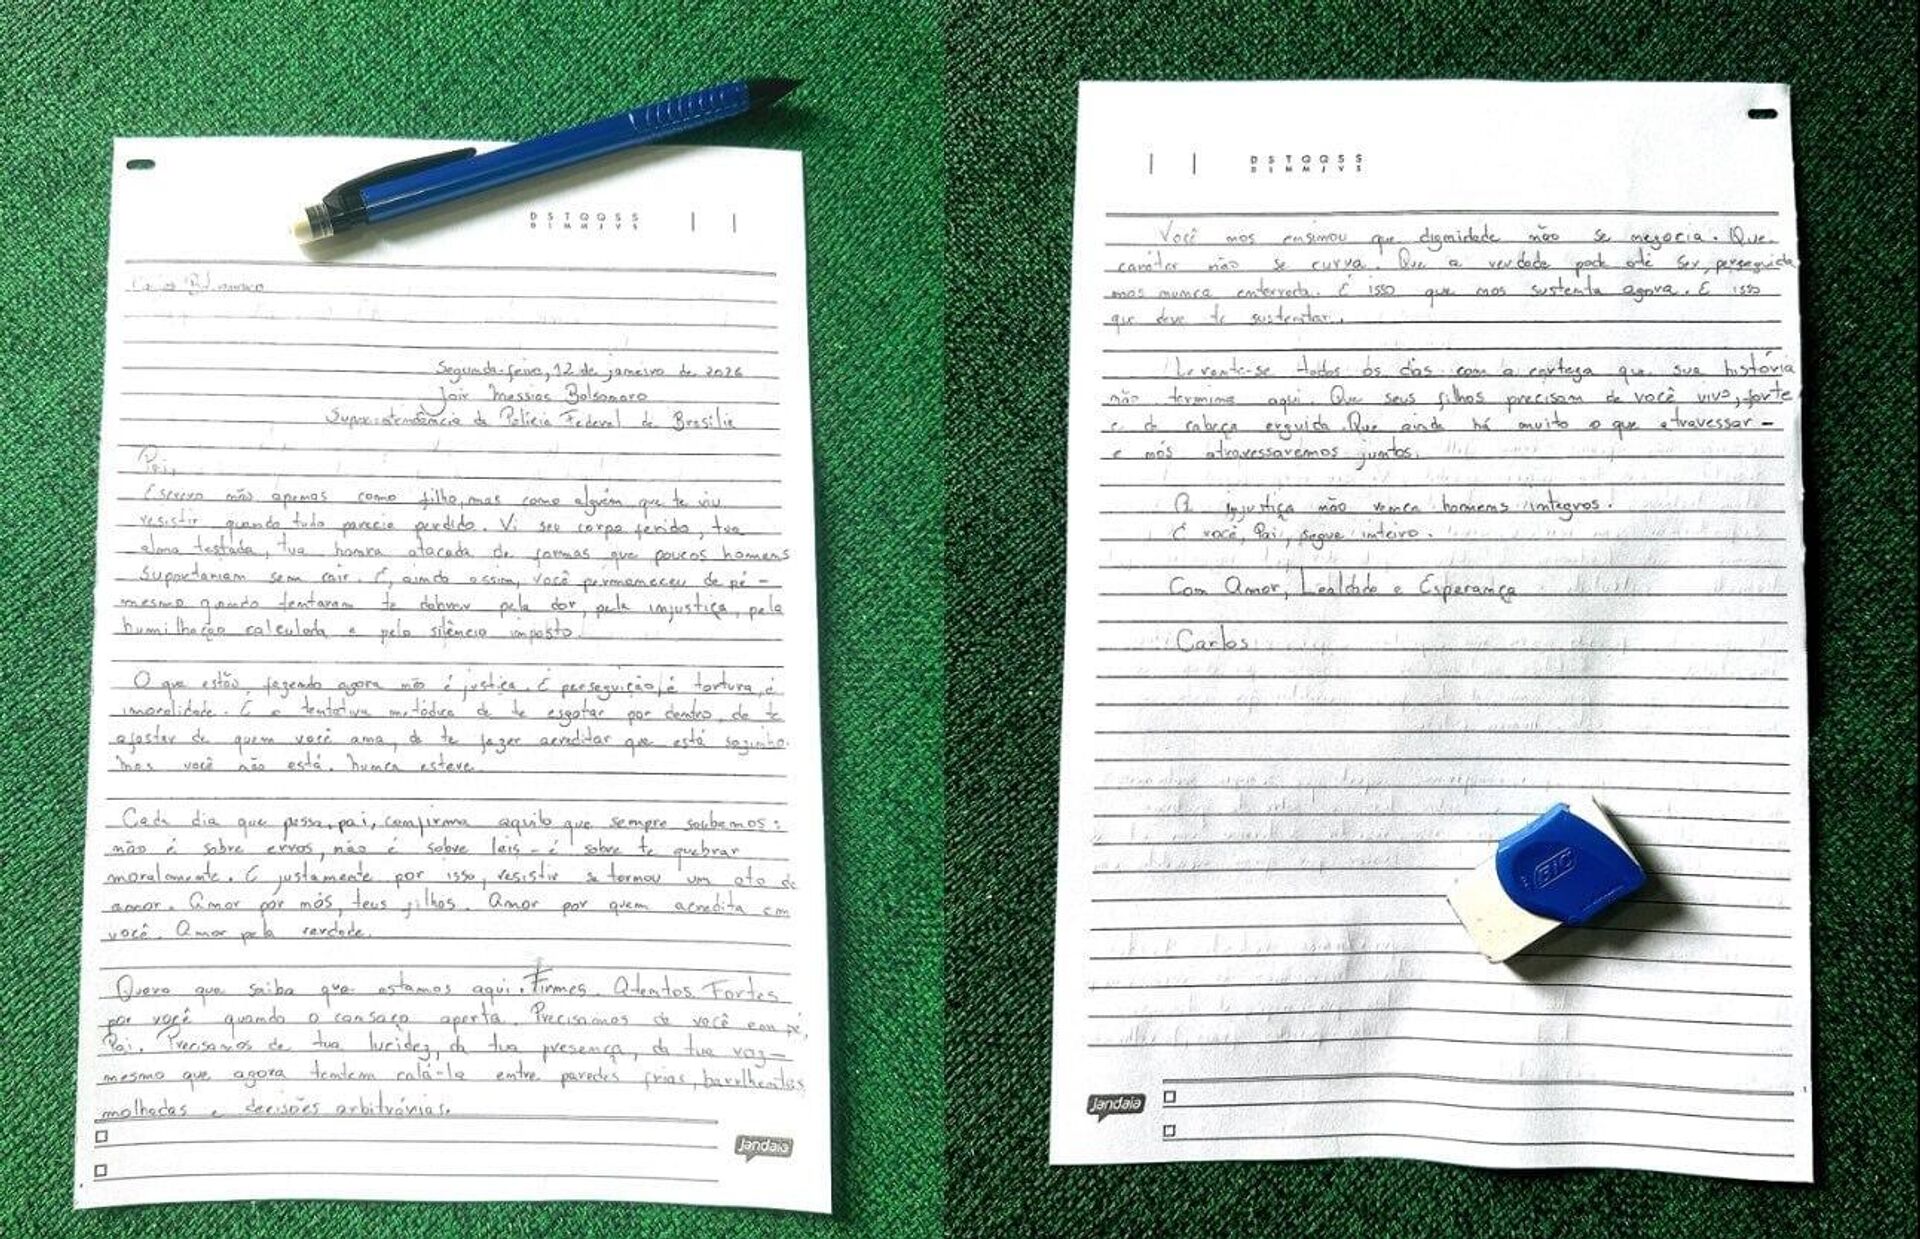 D S T Q Q S S
D L M M J V S
Carlos Bolsonaro
Segunda-feira, 12 de janeiro de 2026
Jair Messias Bolsonaro
Superintendência da Polícia Federal de Brasília
Pai,
Escrevo não apenas como filho, mas como alguém que te viu
resistir quando tudo parecia perdido. Vi seu corpo ferido, tua
alma testada, tua honra atacada de formas que poucos homens
suportariam sem cair. E, ainda assim, você permaneceu de pé -
mesmo quando tentaram te dobrar pela dor, pela injustiça, pela
humilhação calculada e pelo silêncio imposto.
O que estão fazendo agora não é justiça. É perseguição, é tortura, é
imoralidade. É a tentativa metódica de te esgotar por dentro, de te
afastar de quem você ama, de te fazer acreditar que está sozinho.
Mas você não está. Nunca esteve.
Cada dia que passa, pai, confirma aquilo que sempre soubemos:
não é sobre erros, não é sobre leis - é sobre te quebrar
moralmente. E justamente por isso, resistir se tornou um ato de
amor. Amor por nós, teus filhos. Amor por quem acredita em
você. Amor pela verdade.
Quero que saiba que estamos aqui. Firmes. Atentos. Fortes
por você quando o cansaço aperta. Precisamos de você em pé,
Pai. Precisamos de tua lucidez, da tua presença, da tua voz -
mesmo que agora tentem calá-la entre paredes frias, barulhentas
molhadas e decisões arbitrárias.
jandaia
D S T Q Q S S
D L M M J V S
Você nos ensinou que dignidade não se negocia. Que
caráter não se curva. Que a verdade pode até ser, perseguida
mas nunca enterrada. É isso que nos sustenta agora. E isso
que deve te sustentar.
Levante-se todos os dias com a certeza que sua história
não termina aqui. Que seus filhos precisam de você vivo, forte
e de cabeça erguida. Que ainda há muito o que atravessar -
e nós atravessaremos juntos.
A injustiça não vence homens íntegros.
E você, Pai, segue inteiro.
Com Amor, Lealdade e Esperança
Carlos
BIC
jandaia